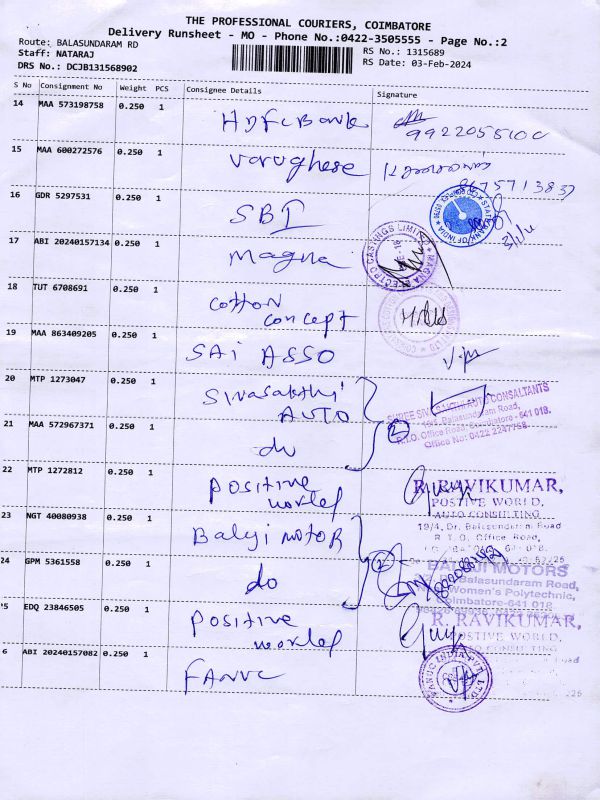 THE PROFESSIONAL COURIERS, COIMBATORE
Delivery Runsheet - MO - Phone No.:0422-3505555 - Page No.:2
Route: BALASUNDARAM RD
Staff: NATARAJ
DRS No.: DCJB131568902
RS No.: 1315689
RS Date: 03-Feb-2024
S No Consignment No Weight PCS Consignee Details Signature
14 MAA 573198758 0.250 1 HDFC Bank
15 MAA 600272576 0.250 1 Varughese
8675713837
16 GDR 5297531 0.250 1 SBI
STATE BANK OF INDIA
17 ABI 20240157134 0.250 1 Magna
MAGNA ELECTRO CASTINGS LIMITED
18 TUT 6708691 0.250 1 Cotton
Concept
19 MAA 863409205 0.250 1 SAI ASSO
20 MTP 1273047 0.250 1 Sivasakthi
AUTO
2
SHREE SIVASAKTHI AUTO CONSULTANTS
Balasundaram Road,
R.T.O. Office Road, Coimbatore - 641 018.
Office No: 0422 2247758.
21 MAA 572967371 0.250 1 do
22 MTP 1272812 0.250 1 Positive
world
R. RAVIKUMAR,
POSTIVE WORLD,
AUTO CONSULTING
19/4, Dr. Balasundaram Road
R. T. O. Office Road,
23 NGT 40080938 0.250 1 Balaji Motor
2
24 GPM 5361558 0.250 1 do
BALAJI MOTORS
Balasundaram Road,
Women's Polytechnic,
Coimbatore-641 018
25 EDQ 23846505 0.250 1 Positive
world
R. RAVIKUMAR,
POSTIVE WORLD,
AUTO CONSULTING
6 ABI 20240157082 0.250 1 FANUC
FANUC INDIA PVT LTD